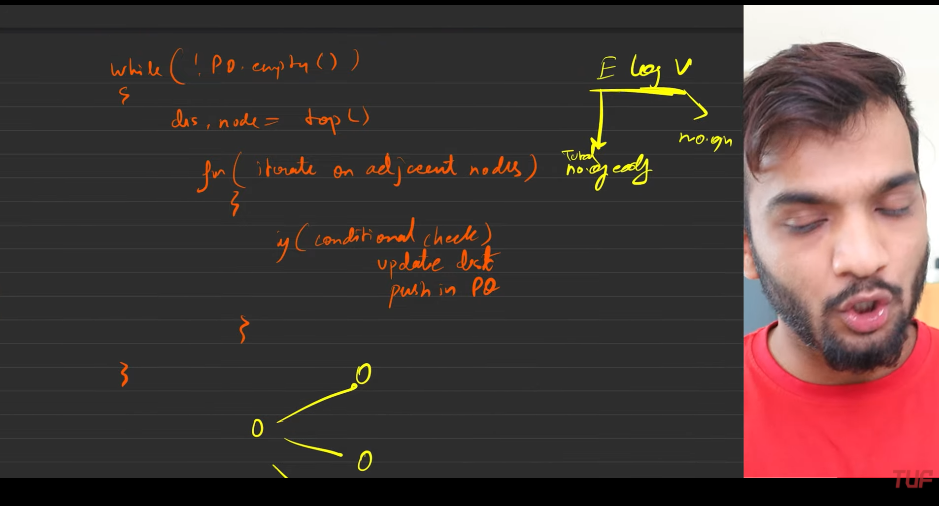 while ( ! PQ.empty() )
{
dis, node = top()
for ( iterate on adjacent nodes )
{
if ( conditional check )
update dist
push in PQ
}
}
E log V
Total
no. of edges
no. of n
TUF